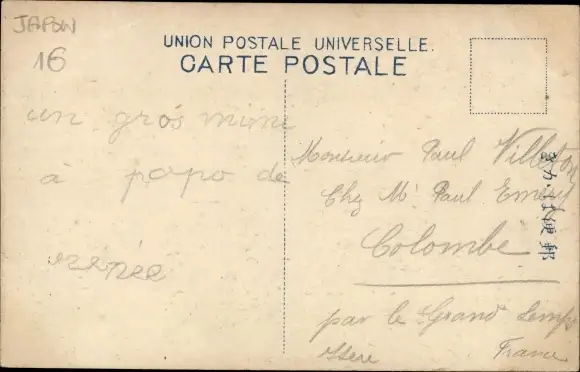 JAPON
16
UNION POSTALE UNIVERSELLE.
CARTE POSTALE
un gros mimi
à papa de
renée
Monsieur Paul Villeton
Chez Mr Paul Emery
Colombe
par le Grand Lemps
Isère France
郵便はかき